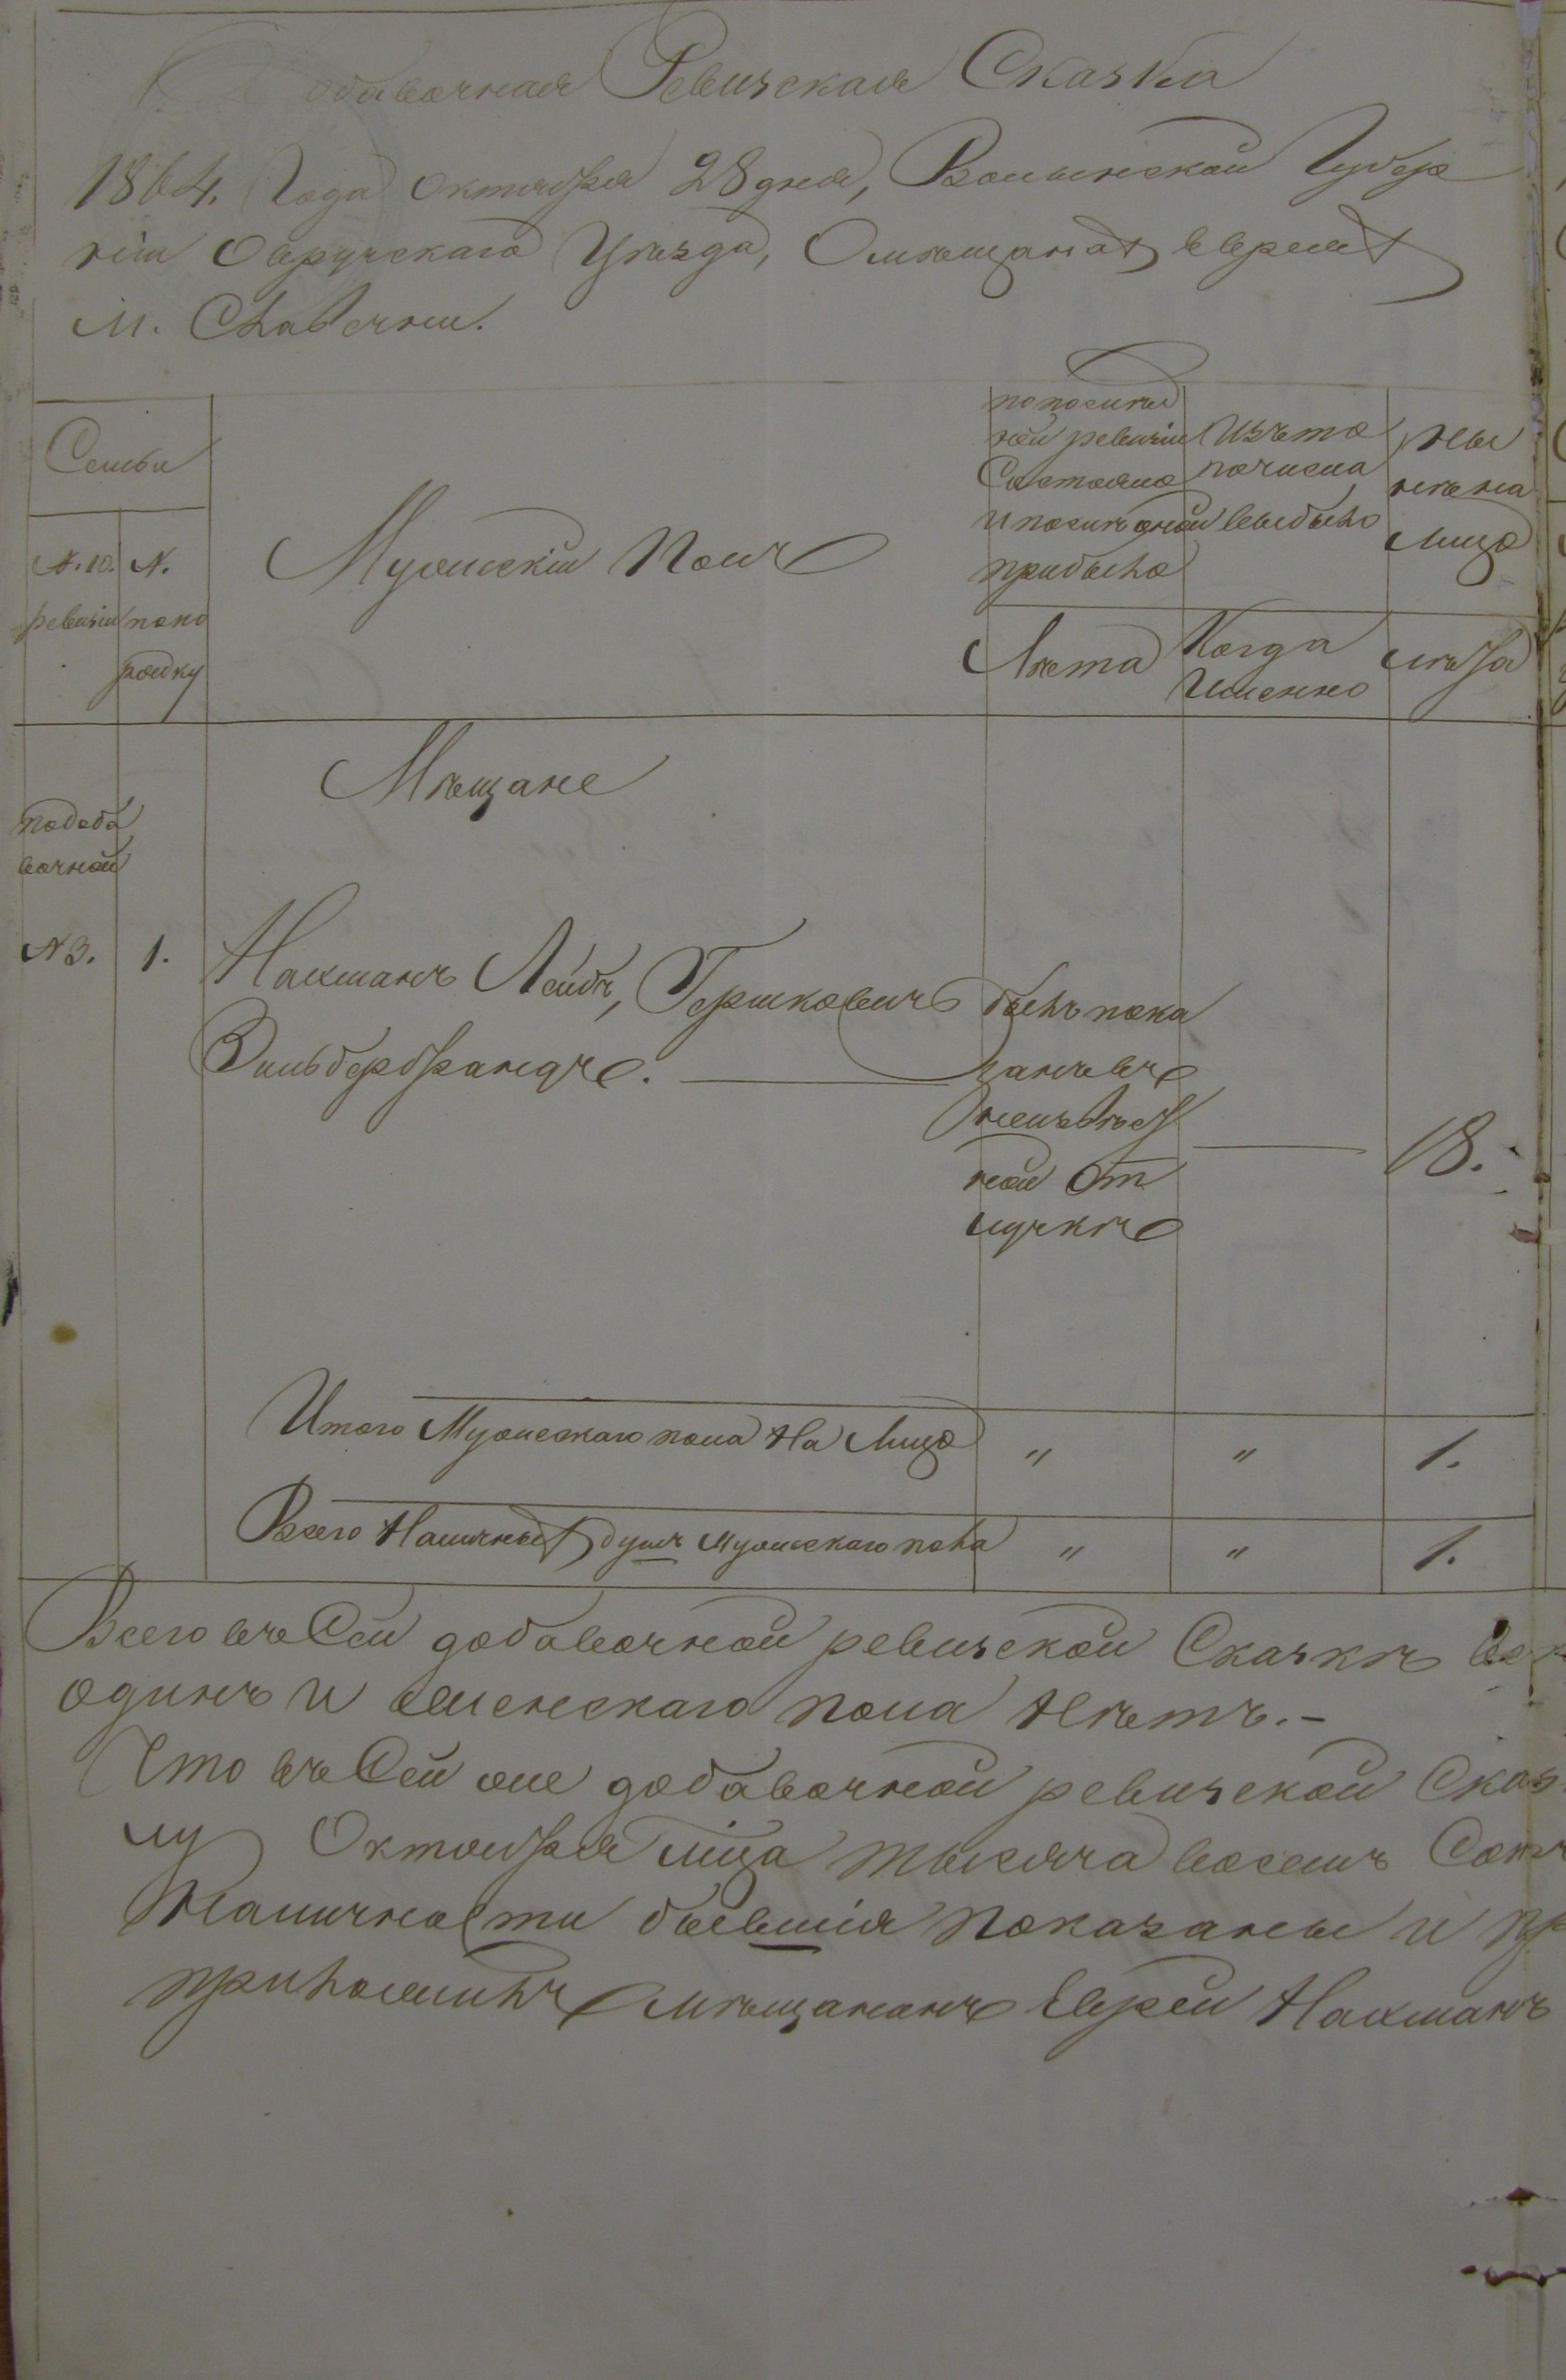 Добавочная Ревизская Сказка
1864. Года Октября 28 дня, Волынской Губер
ніи Овручскаго Уѣзда, Омѣщанах евреях
м. Словечни.
Семьи
N. 10. ревизіи
N. по по рядку
Мужескій Полъ
по послѣд
ней ревизіи
Состояло
и послѣ оной
прибыло
Изъ то
го числа
выбыло
Ны
нѣ на
лицо
Лѣта
Когда
Именно
лѣта
Мѣщане
подоба
вочной
N 3. 1. Нахманъ Лейбъ, Гершковичъ
Зильбербрандъ.
былъ пока
занъ въ
неизвѣст
ной От
лучкѣ
18.
Итого Мужескаго пола На Лицо " " 1.
Всего Наличныхъ душъ мужескаго пола " " 1.
Всего въ Сей добавочной ревизской Сказкѣ
одинъ и женскаго пола Нѣтъ.-
Что въ Сей же добавочной ревизской Сказ
лу Октября мца тысяча восемь Сотъ
Наличности бывшія показаны и пр
приложилъ мѣщанинъ Еврей Нахманъ